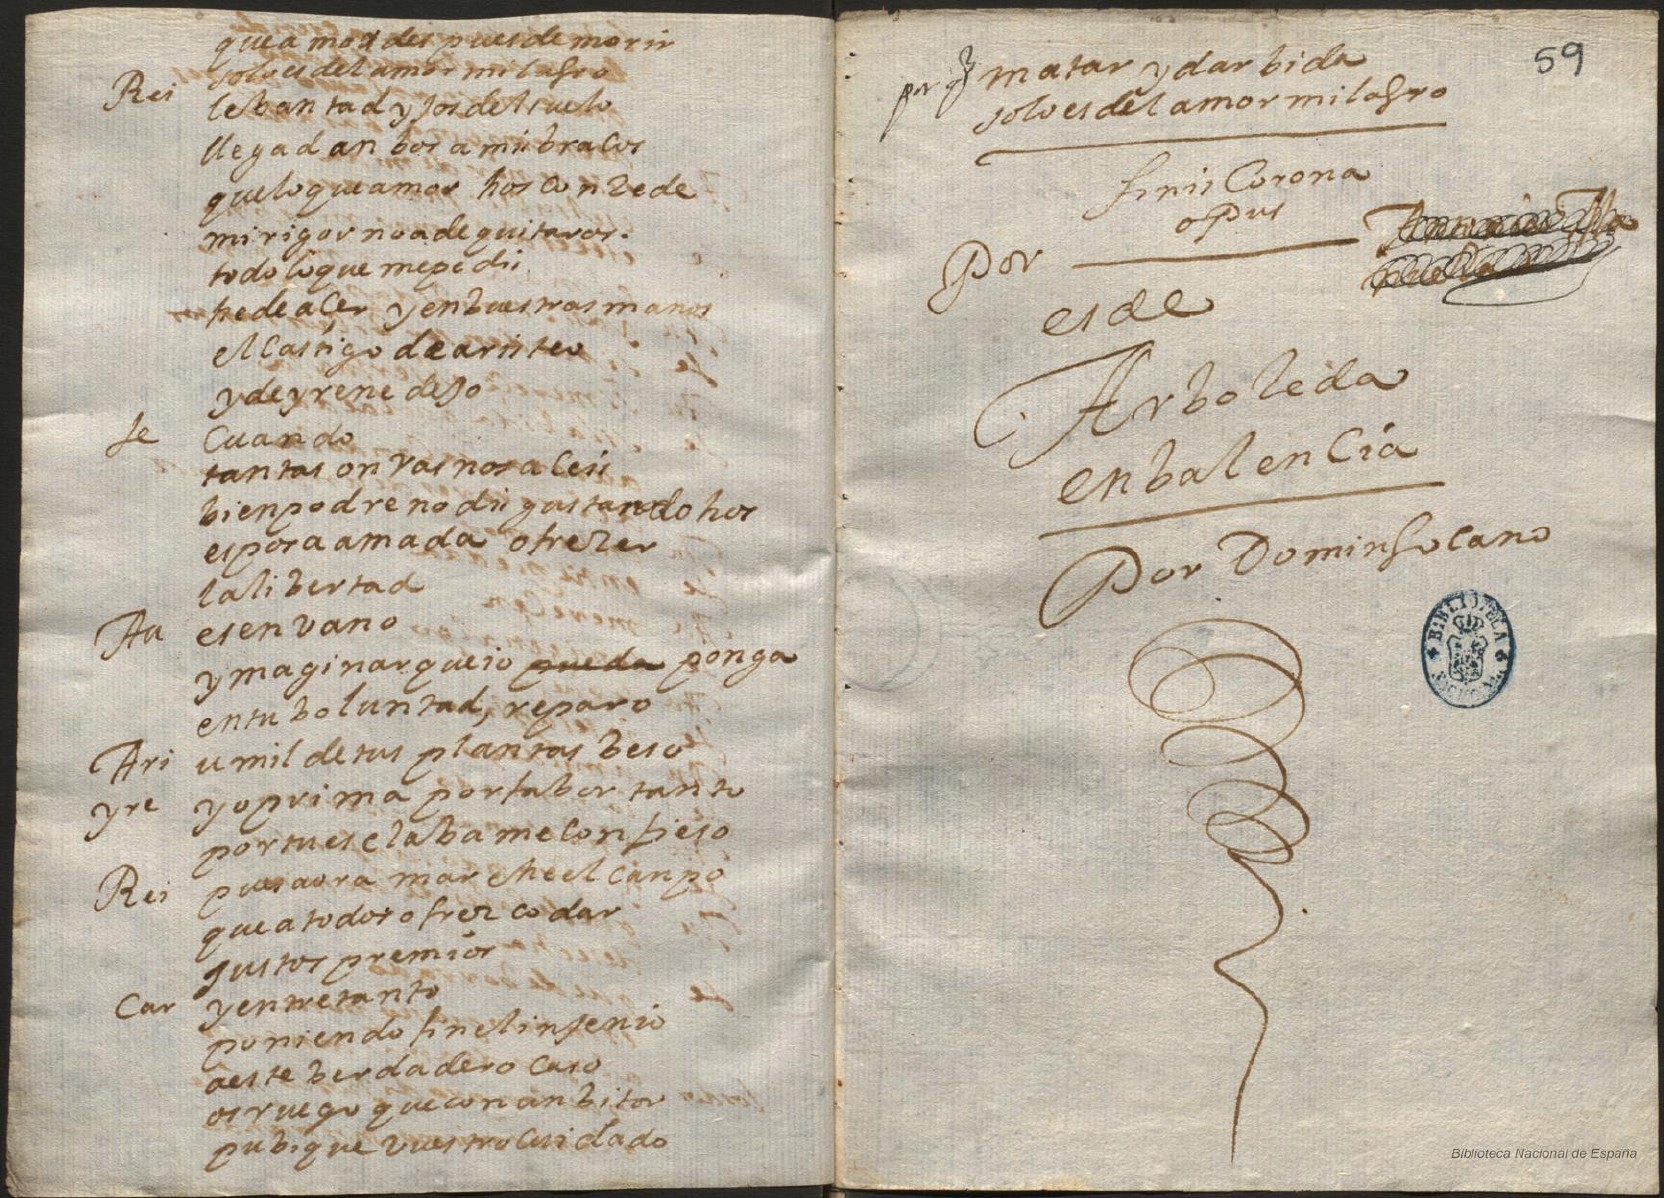 que amor despues de morir
solo es del amor milagro
Rei lebantad y sos del suelo
llegad an bos a mis bracos
que lo que amor hos conzede
mi rigor no a de quitaros.
todo lo que me pedis
he de acer y en buestras manos
el castigo de aristeo
y de yrene dejo
fe Cuando
tantas onrras nos aceis
bien podre no disgustando hos
esposa amada ofrezer
la libertad
Au es en vano
ymaginar que io pueda ponga
en tu boluntad, reparo
Ari umilde tus plantas beso
yre yo prima por fabor tanto
por tu esclaba me confieso
Rei pues aora marche el canpo
que a todos ofrezco dar
justos premios
Car y entretanto
poniendo fin el injenio
a este berdadero caso
os ruego que con anbitos
pubique vuestro Cuidado
59
por q matar y dar bida
solo es del amor milagro
finis Corona
opus
Por
es de
Arboleda
en balencia
Por Domingo cano
BIBLIOTECA NACIONAL
Biblioteca Nacional de España